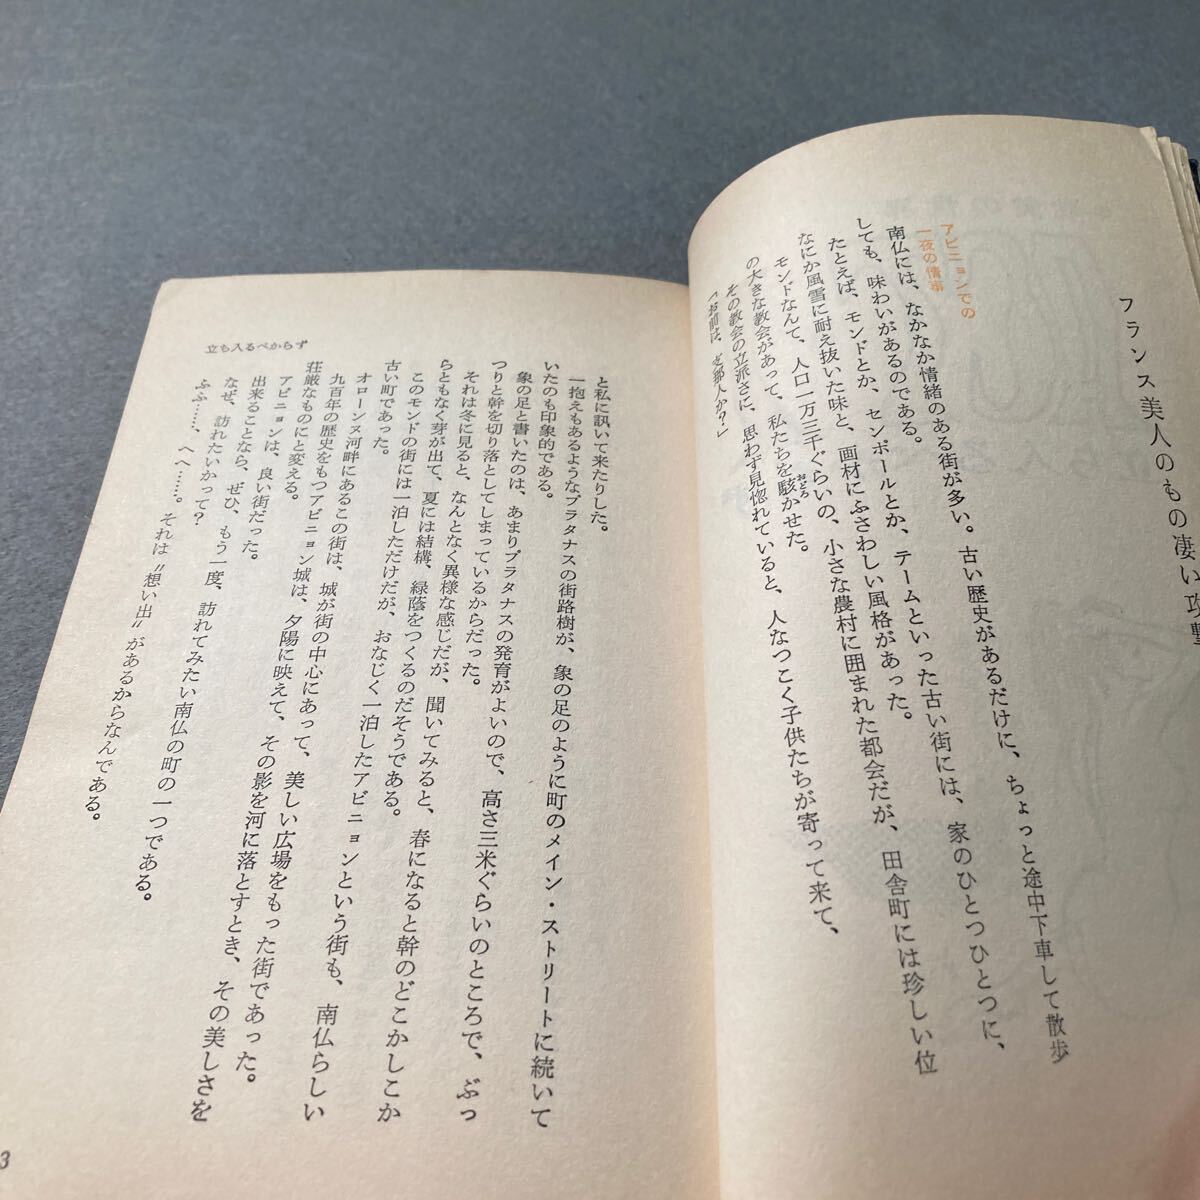 フランス美人のもの凄い攻撃
アビニョンでの
一夜の情事
南仏には、なかなか情緒のある街が多い。古い歴史があるだけに、ちょっと途中下車して散歩
しても、味わいがあるのである。
たとえば、モンドとか、センポールとか、テームといった古い街には、家のひとつひとつに、
なにか風雪に耐え抜いた味と、画材にふさわしい風格があった。
モンドなんて、人口一万三千ぐらいの、小さな農村に囲まれた都会だが、田舎町には珍しい位
の大きな教会があって、私たちを駭かせた。
おどろ
その教会の立派さに、思わず見惚れていると、人なつこく子供たちが寄って来て、
「お前は、支那人か?」
と私に訊いて来たりした。
一抱えもあるようなプラタナスの街路樹が、象の足のように町のメイン・ストリートに続いて
いたのも印象的である。
象の足と書いたのは、あまりプラタナスの発育がよいので、高さ三米ぐらいのところで、ぶっ
つりと幹を切り落としてしまっているからだった。
それは冬に見ると、なんとなく異様な感じだが、聞いてみると、春になると幹のどこかしこか
らともなく芽が出て、夏には結構、緑蔭をつくるのだそうである。
このモンドの街には一泊しただけだが、おなじく一泊したアビニョンという街も、南仏らしい
古い町であった。
オローンヌ河畔にあるこの街は、城が街の中心にあって、美しい広場をもった街であった。
九百年の歴史をもつアビニョン城は、夕陽に映えて、その影を河に落とすとき、その美しさを
荘厳なものにと変える。
アビニョンは、良い街だった。
出来ることなら、ぜひ、もう一度、訪れてみたい南仏の町の一つである。
なぜ、訪れたいかって?
ふふ……、へへ……。それは〝想い出〟があるからなんである。
立ち入るべからず
3